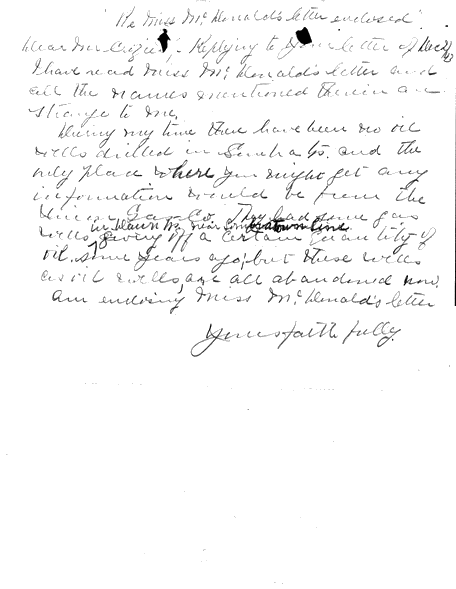 "Re Miss McDonald's letter enclosed"
Dear Mr. : Replying to your letter of Dec
I have read Miss McDonald's letter and
all the names mentioned therein are
strange to me.
During my time there have been no oil
wells drilled in Co. and the
only place where you might get any
information would be from the
Union Gas Co. They had some gas
in near line
wells giving off a certain quantity of
oil, some years ago; but these wells
as oil wells, are all abandoned now.
Am enclosing Miss McDonald's letter
Yours faithfully.